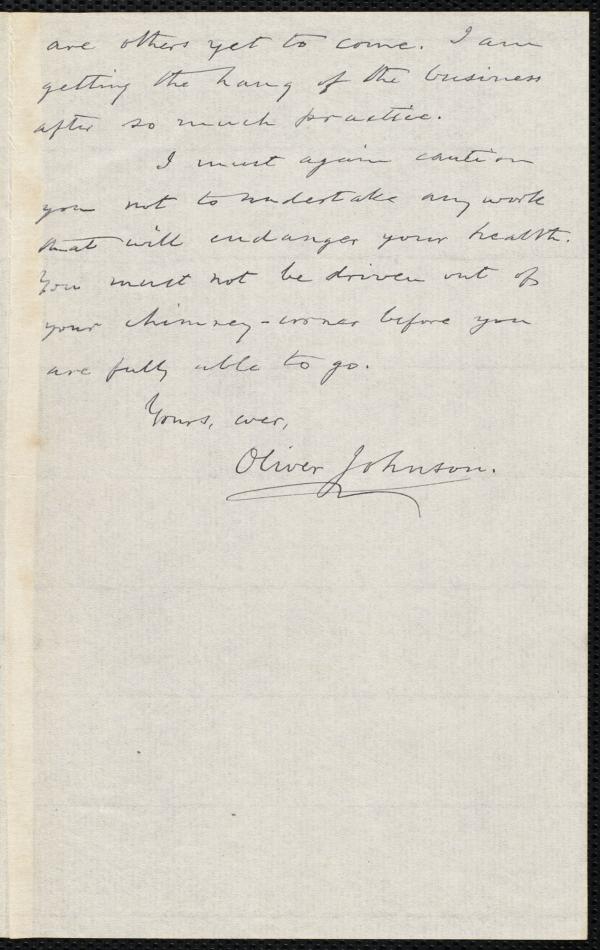 are others yet to come. I am
getting the hang of the business
after so much practice.
I must again caution
you not to undertake any work
that will endanger your health.
You must not be driven out of
your chimney-corner before you
are fully able to go.
Yours, ever,
Oliver Johnson.